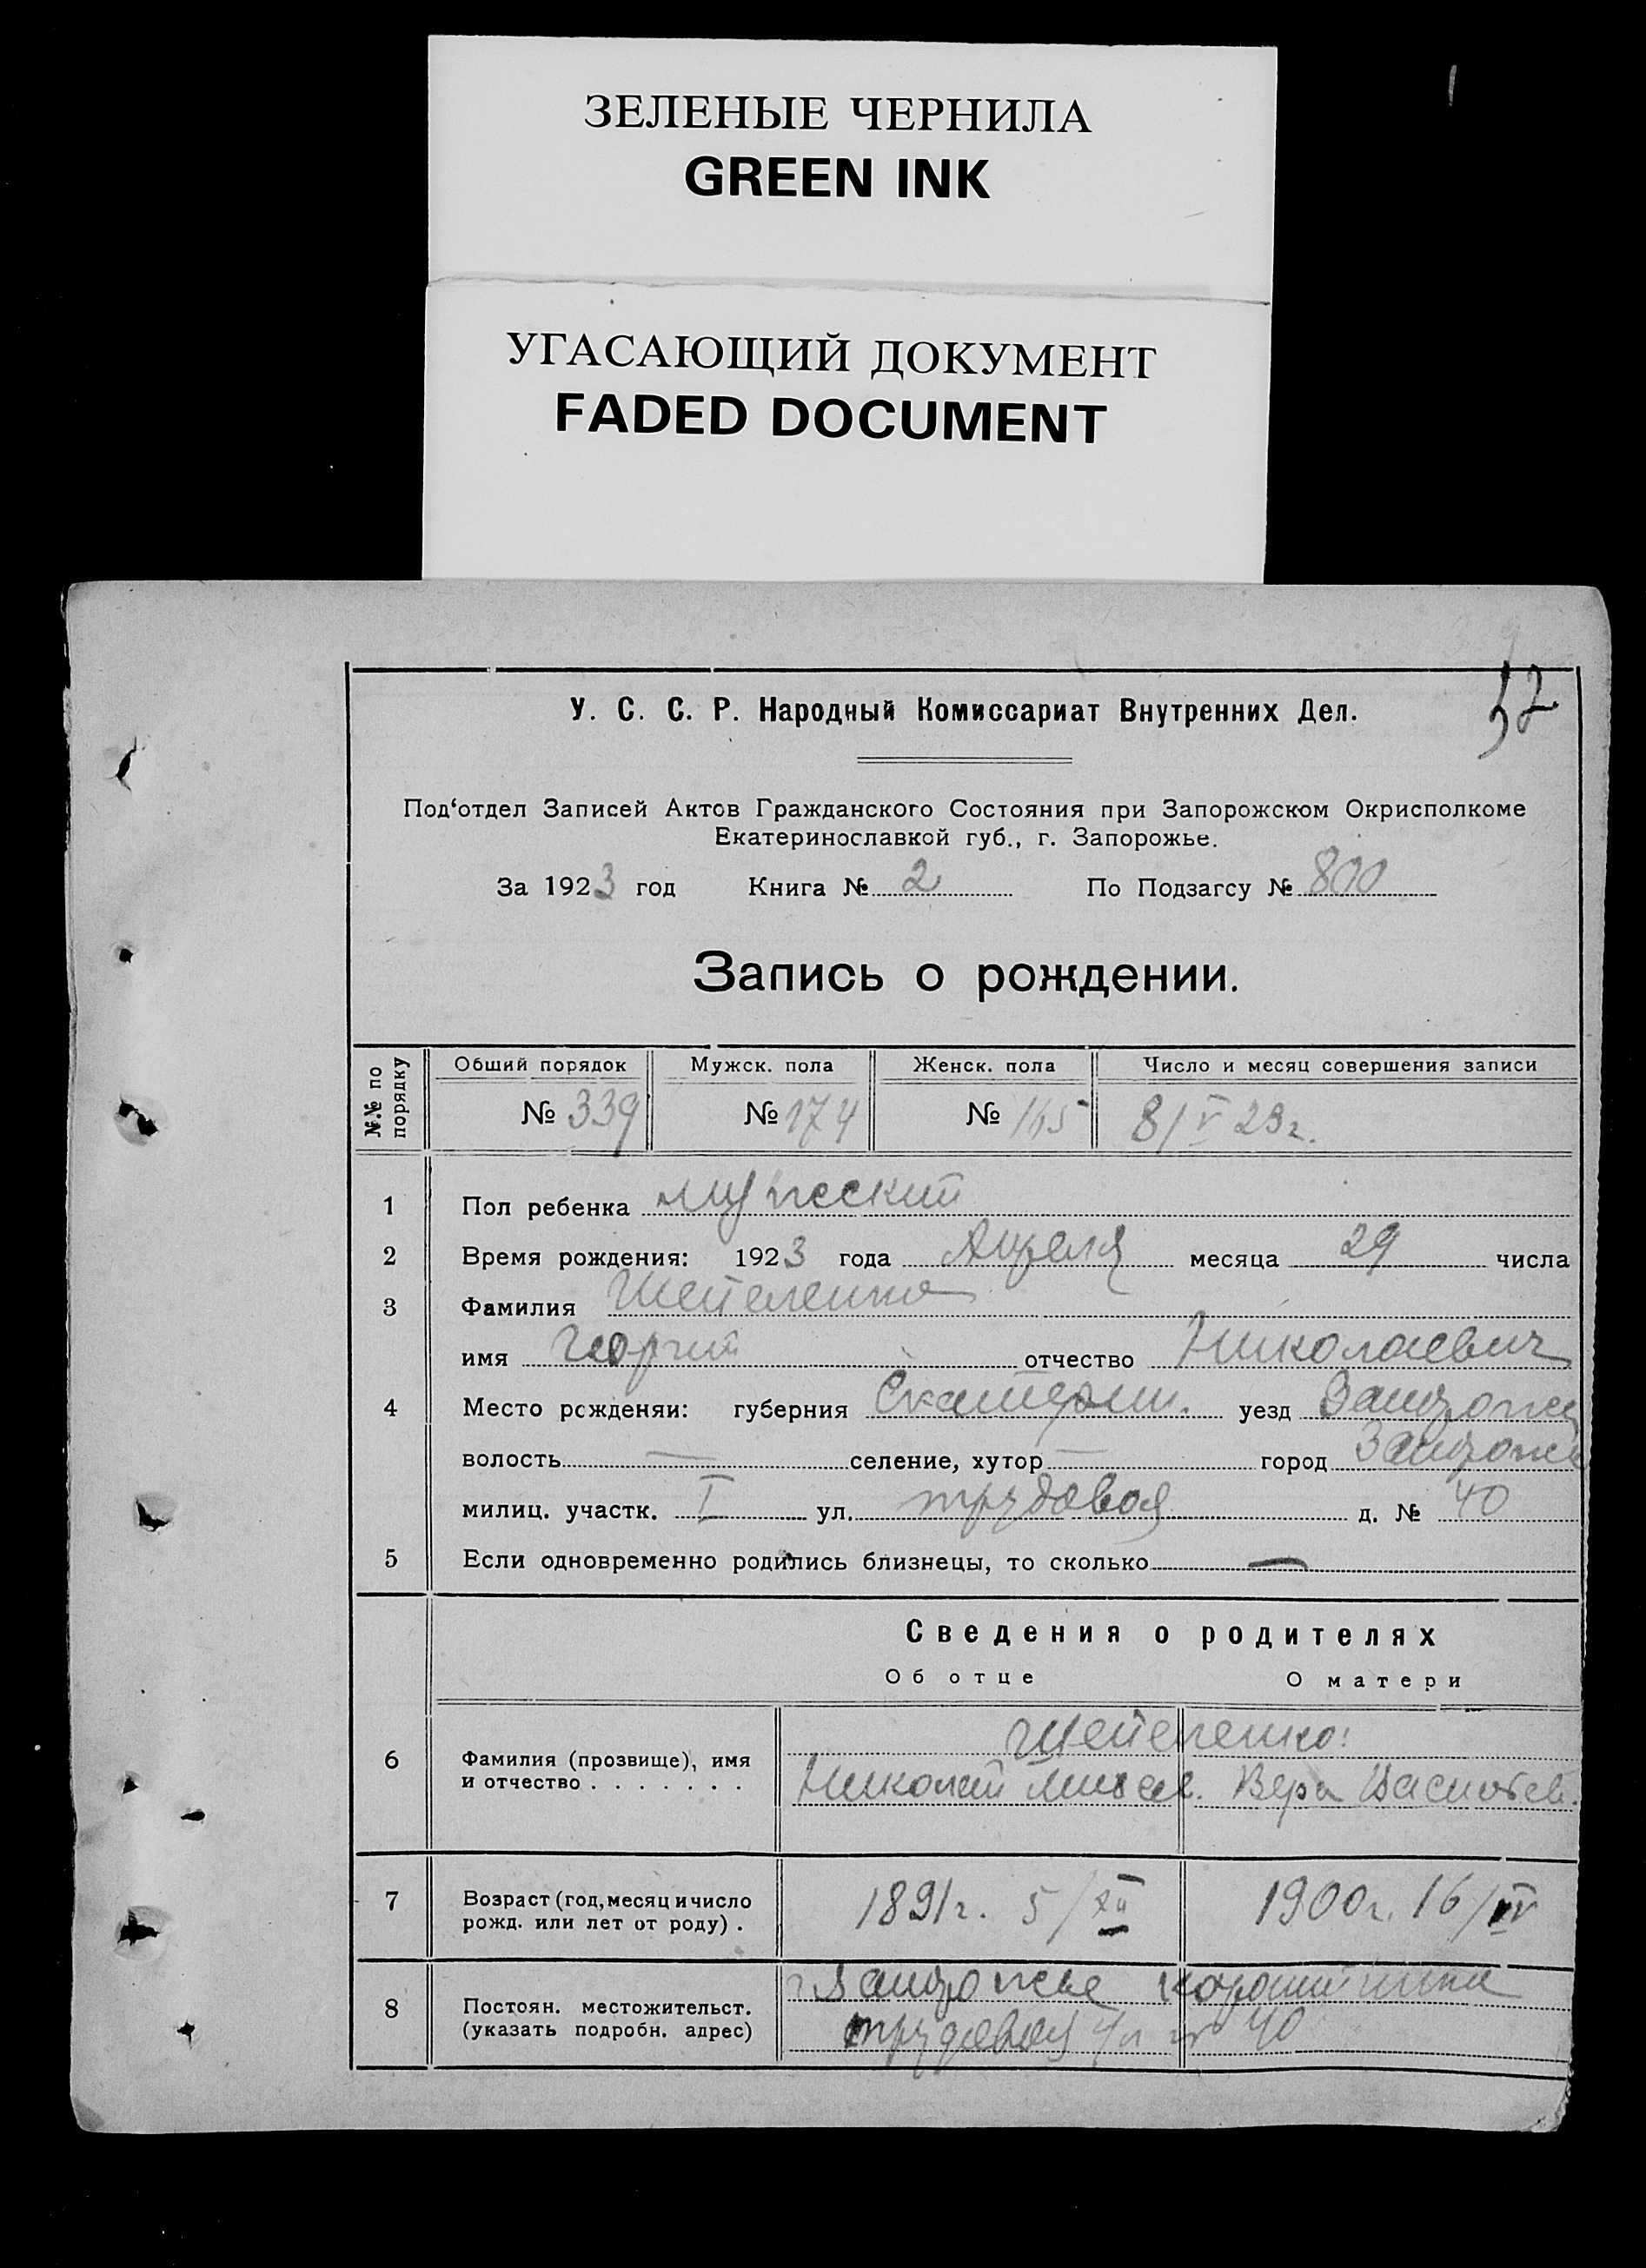 ЗЕЛЕНЫЕ ЧЕРНИЛА
GREEN INK
УГАСАЮЩИЙ ДОКУМЕНТ
FADED DOCUMENT
У. С. С. Р. Народный Комиссариат Внутренних Дел.
Под‘отдел Записей Актов Гражданского Состояния при Запорожском Окрисполкоме
Екатеринославкой губ., г. Запорожье.
За 1923 год Книга № 2 По Подзагсу № 800
Запись о рождении.
№№ по порядку Общий порядок Мужск. пола Женск. пола Число и месяц совершения записи
№ 339 № 174 № 165 8/V 23г.
1 Пол ребенка мужеский
2 Время рождения: 1923 года Апреля месяца 29 числа
3 Фамилия Шепеленко
имя Георгий отчество Николаевич
4 Место рожденяи: губерния Екатерин. уезд Запорож
волость — селение, хутор — город Запорож
милиц. участк. I ул. трудовая д. № 40
5 Если одновременно родились близнецы, то сколько —
Сведения о родителях
Об отце О матери
Шепеленко:
6 Фамилия (прозвище), имя
и отчество . . . . . . . Николай Михаел. Вера Васильев.
7 Возраст (год, месяц и число
рожд. или лет от роду) . 1891г. 5/XII 1900г. 16/IV
8 Постоян. местожительст.
(указать подробн. адрес)
г. Запорожье
трудовая ул № 40